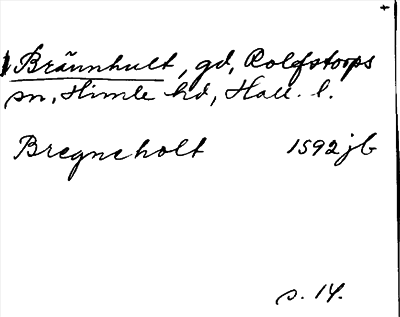 Brännhult, gd, Rolfstorps
sn, Himle hd, Hall. l.
Bregneholt 1592 jb
s. 14.